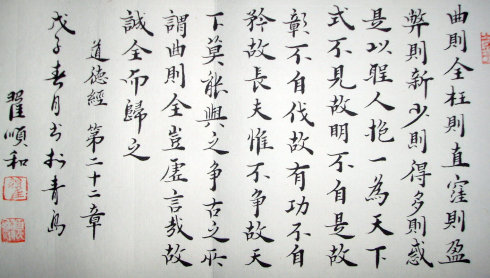 曲則全枉則直窪則盈
弊則新少則得多則惑
是以聖人抱一為天下
式不見故明不自是故
彰不自伐故有功不自
矜故長夫惟不争故天
下莫能與之争古之所
謂曲則全豈虛言哉故
誠全而歸之
道德經 第二十二章
戊子春月书於青島
翟順和